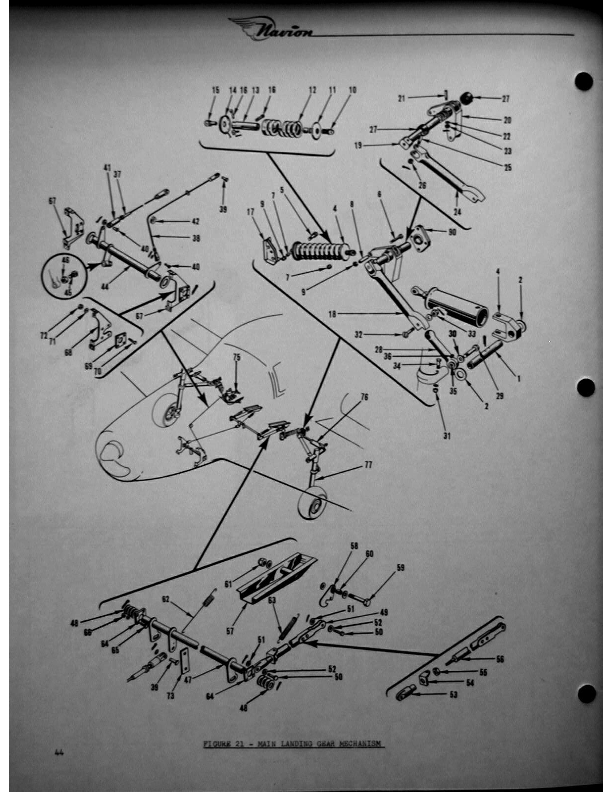 Navion
15 14 16 13 16 12 11 10
21 27 20 22 23 27 19 25 26 24
41 37 39 67 42 38 40 46 45 44 40 67
5 8 6 9 7 4 17 90 7 9
18 32 33 4 2
72 71 68 69 70
28 36 34 30 35 1 29 2 31
75 76 77
61 58 60 59 57 63 51 49 52 50
62 48 66 64 65 51 52 50 39 73 47 64 48
56 55 54 53
FIGURE 21 - MAIN LANDING GEAR MECHANISM
44